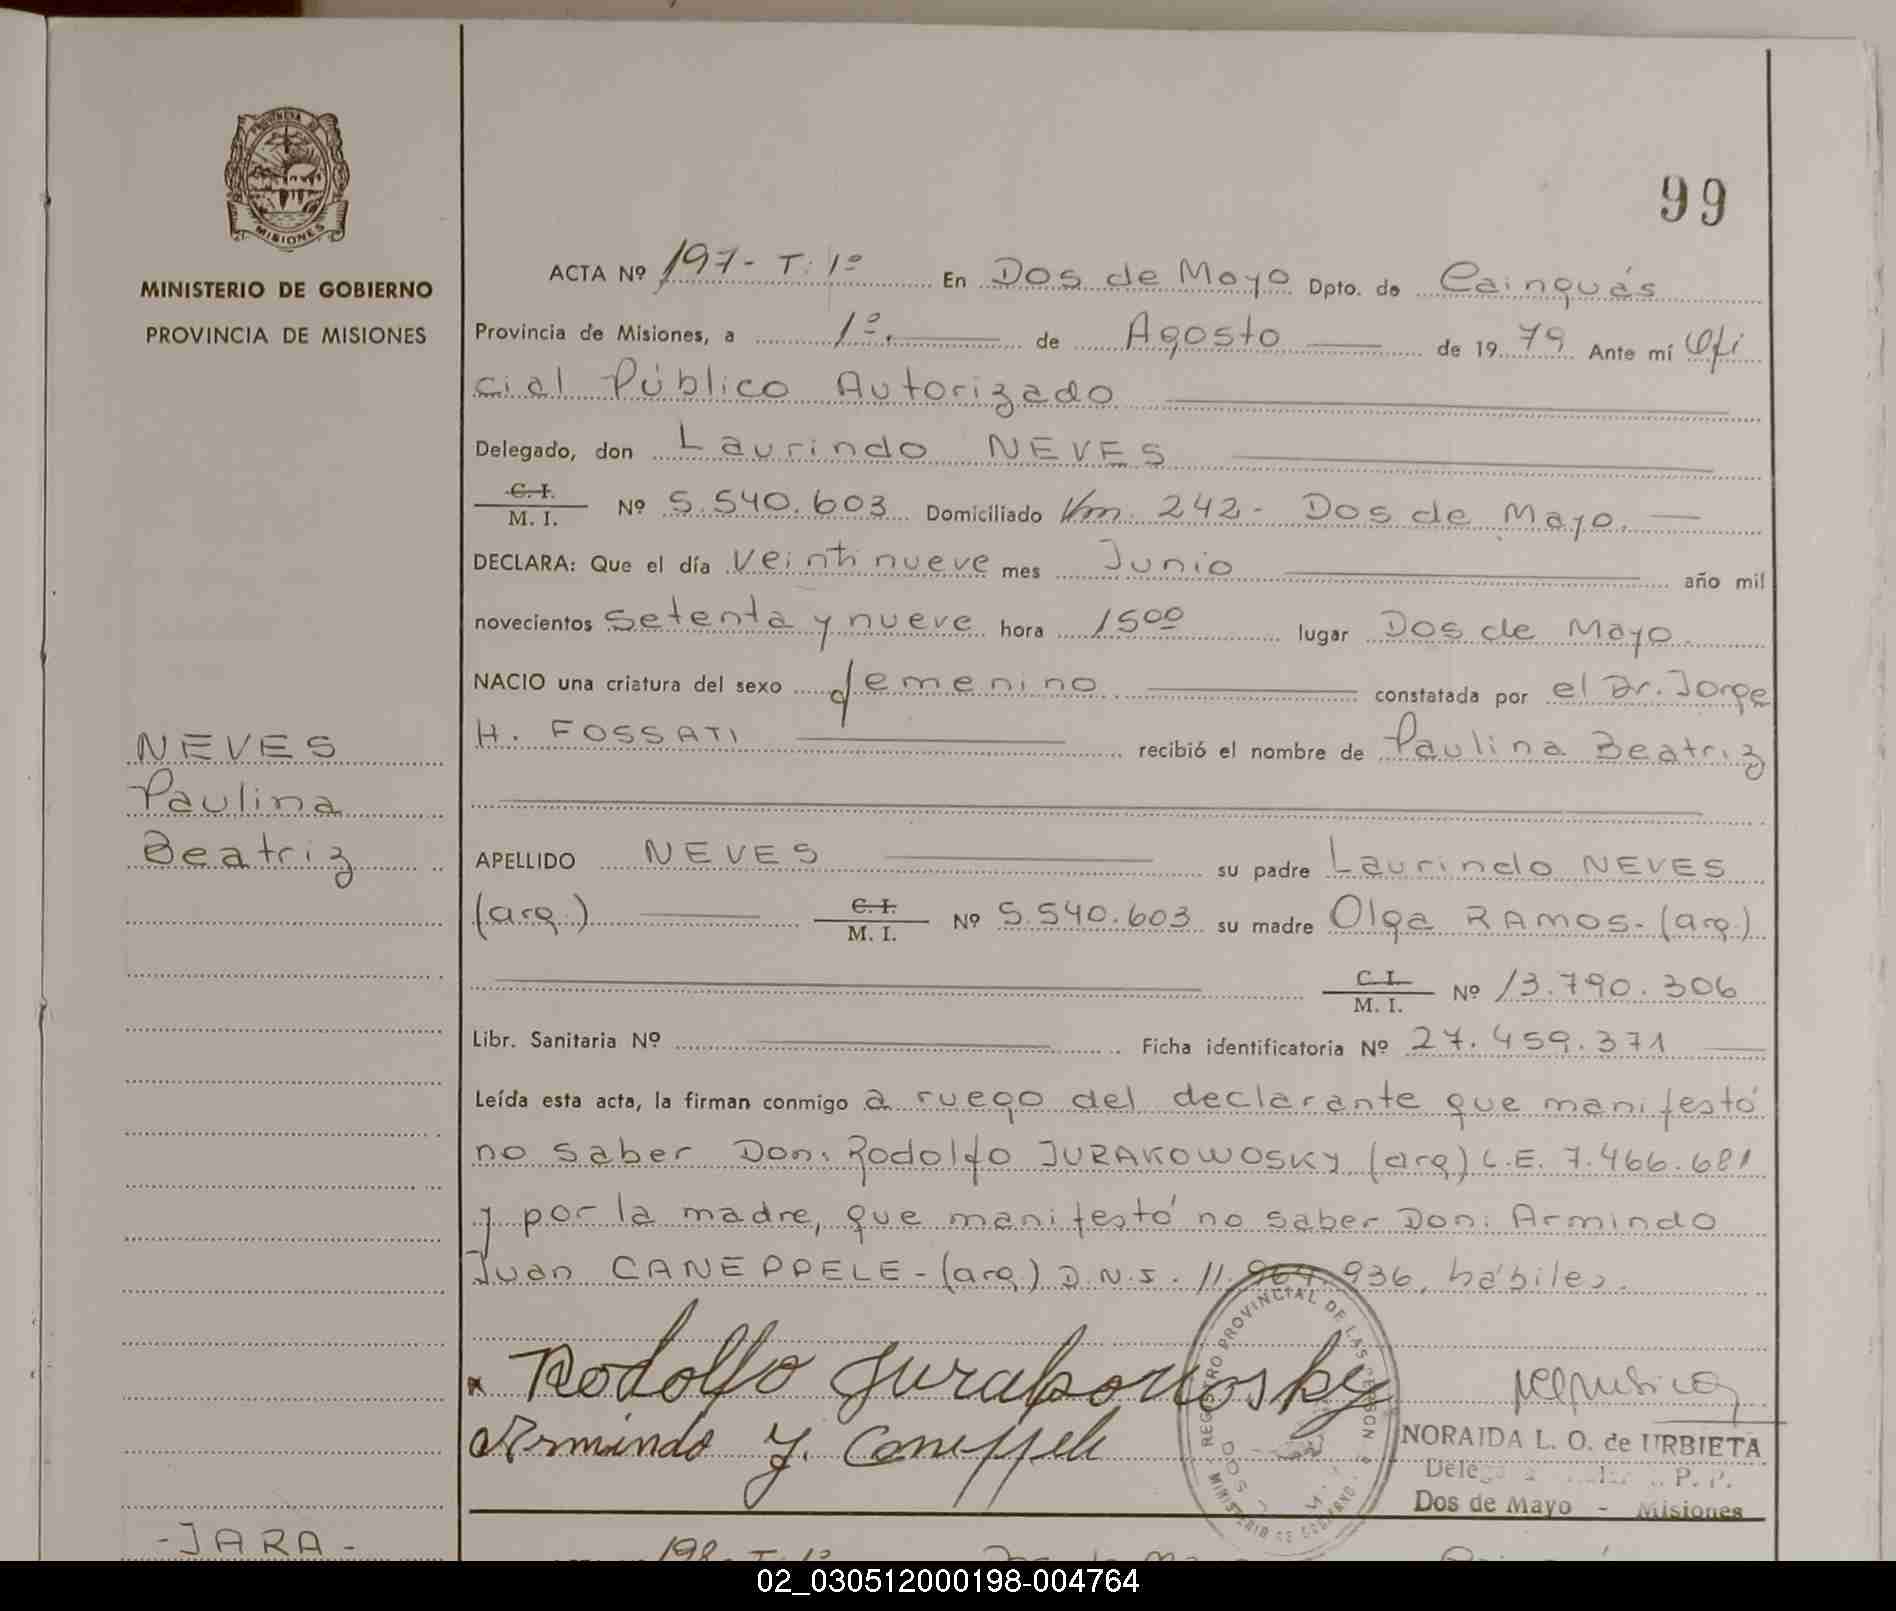 99
PROVINCIA DE
MISIONES
MINISTERIO DE GOBIERNO
PROVINCIA DE MISIONES
ACTA Nº 197- T: 1º En Dos de Mayo Dpto. de Cainguás
Provincia de Misiones, a 1º. de Agosto de 1979 Ante mí Ofi
cial Público Autorizado
Delegado, don Laurindo NEVES
C. I.
M. I. Nº 5.540.603 Domiciliado Km. 242- Dos de Mayo.
DECLARA: Que el día Veintinueve mes Junio año mil
novecientos setenta y nueve hora 15ºº lugar Dos de Mayo
NACIO una criatura del sexo femenino constatada por el Dr. Jorge
H. FOSSATI recibió el nombre de Paulina Beatriz
NEVES
Paulina
Beatriz
APELLIDO NEVES su padre Laurindo NEVES
(arg.) C. I.
M. I. Nº 5.540.603 su madre Olga RAMOS- (arg.)
C. I.
M. I. Nº 13.790.306
Libr. Sanitaria Nº Ficha identificatoria Nº 27.459.371
Leída esta acta, la firman conmigo a ruego del declarante que manifestó
no saber Don: Rodolfo JURAKOWOSKY (arg) L.E. 7.466.681
y por la madre, que manifestó no saber Don: Armindo
Juan CANEPPELE- (arg.) D.N.I. 11.964.936, hábiles.
Rodolfo Jurakowosky
Armindo J. Caneppele
REGISTRO PROVINCIAL DE LAS PERSON
MINISTERIO DE GOBIERNO
DOS
NORAIDA L. O. de URBIETA
P. P.
Dos de Mayo - Misiones
-JARA-
198- T: 1º
02_030512000198-004764